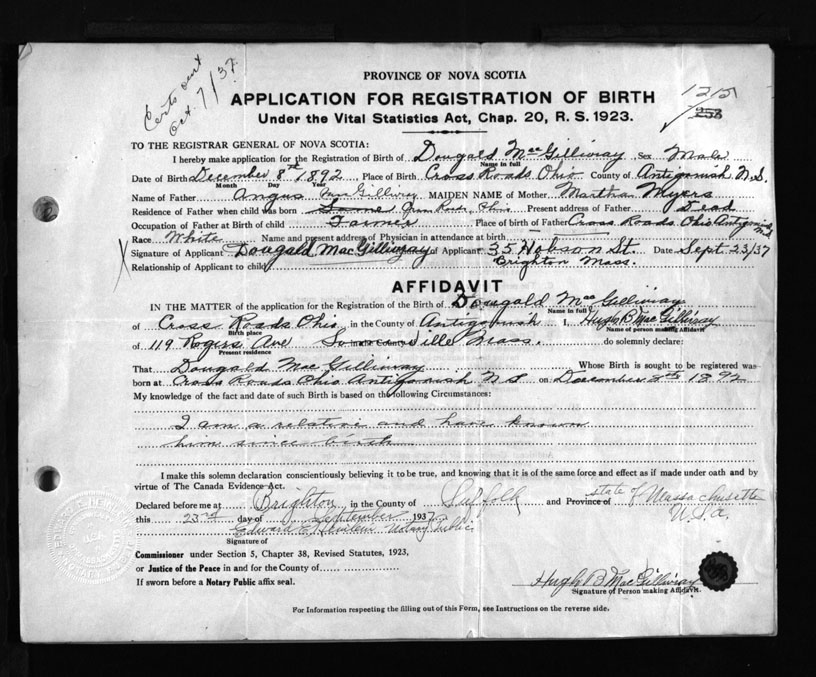 Certs sent
Oct. 7/37
PROVINCE OF NOVA SCOTIA
1215
APPLICATION FOR REGISTRATION OF BIRTH
Under the Vital Statistics Act, Chap. 20, R. S. 1923.
TO THE REGISTRAR GENERAL OF NOVA SCOTIA:
I hereby make application for the Registration of Birth of Dougald MacGillivray Sex Male
Name in full
Date of Birth December 8th 1892 Place of Birth Cross Roads Ohio County of Antigonish N.S.
Month Day Year
Name of Father Angus MacGillivray MAIDEN NAME of Mother Martha Myers
Residence of Father when child was born Ohio Present address of Father Dead
Occupation of Father at Birth of child Farmer Place of birth of Father Cross Roads Ohio Antigonish
Race White Name and present address of Physician in attendance at birth
Signature of Applicant Dougald MacGillivray of Applicant 35 Hobson St. Date Sept 23/37
Relationship of Applicant to child Brighton Mass.
AFFIDAVIT
IN THE MATTER of the application for the Registration of the Birth of Dougald MacGillivray
Name in full
of Cross Roads Ohio, in the County of Antigonish I, Hugh B MacGillivray
Birth place Name of person making Affidavit
of 119 Rogers Ave Somerville Mass. do solemnly declare:
Present residence
That Dougald MacGillivray Whose Birth is sought to be registered was
born at Cross Roads Ohio Antigonish N S on December 8th 1892
My knowledge of the fact and date of such Birth is based on the following Circumstances:
I am a relative and have known
him since birth
I make this solemn declaration conscientiously believing it to be true, and knowing that it is of the same force and effect as if made under oath and by
virtue of The Canada Evidence Act.
Declared before me at Brighton in the County of Suffolk and Province of State of Massachusetts
this 23rd day of September 1937 U.S.A.
Edward Notary Public
Signature of
Commissioner under Section 5, Chapter 38, Revised Statutes, 1923,
or Justice of the Peace in and for the County of
If sworn before a Notary Public affix seal.
Hugh B MacGillivray
Signature of Person making Affidavit.
For Information respecting the filling out of this Form, see Instructions on the reverse side.